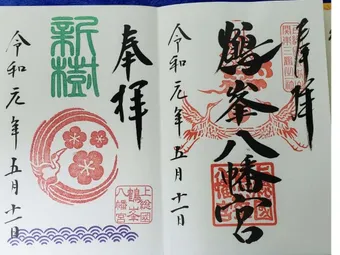 奉拝
鶴峯八幡宮
令和元年五月十一日
奉拝
新樹
上総国
鶴峯
八幡宮
令和元年五月十一日